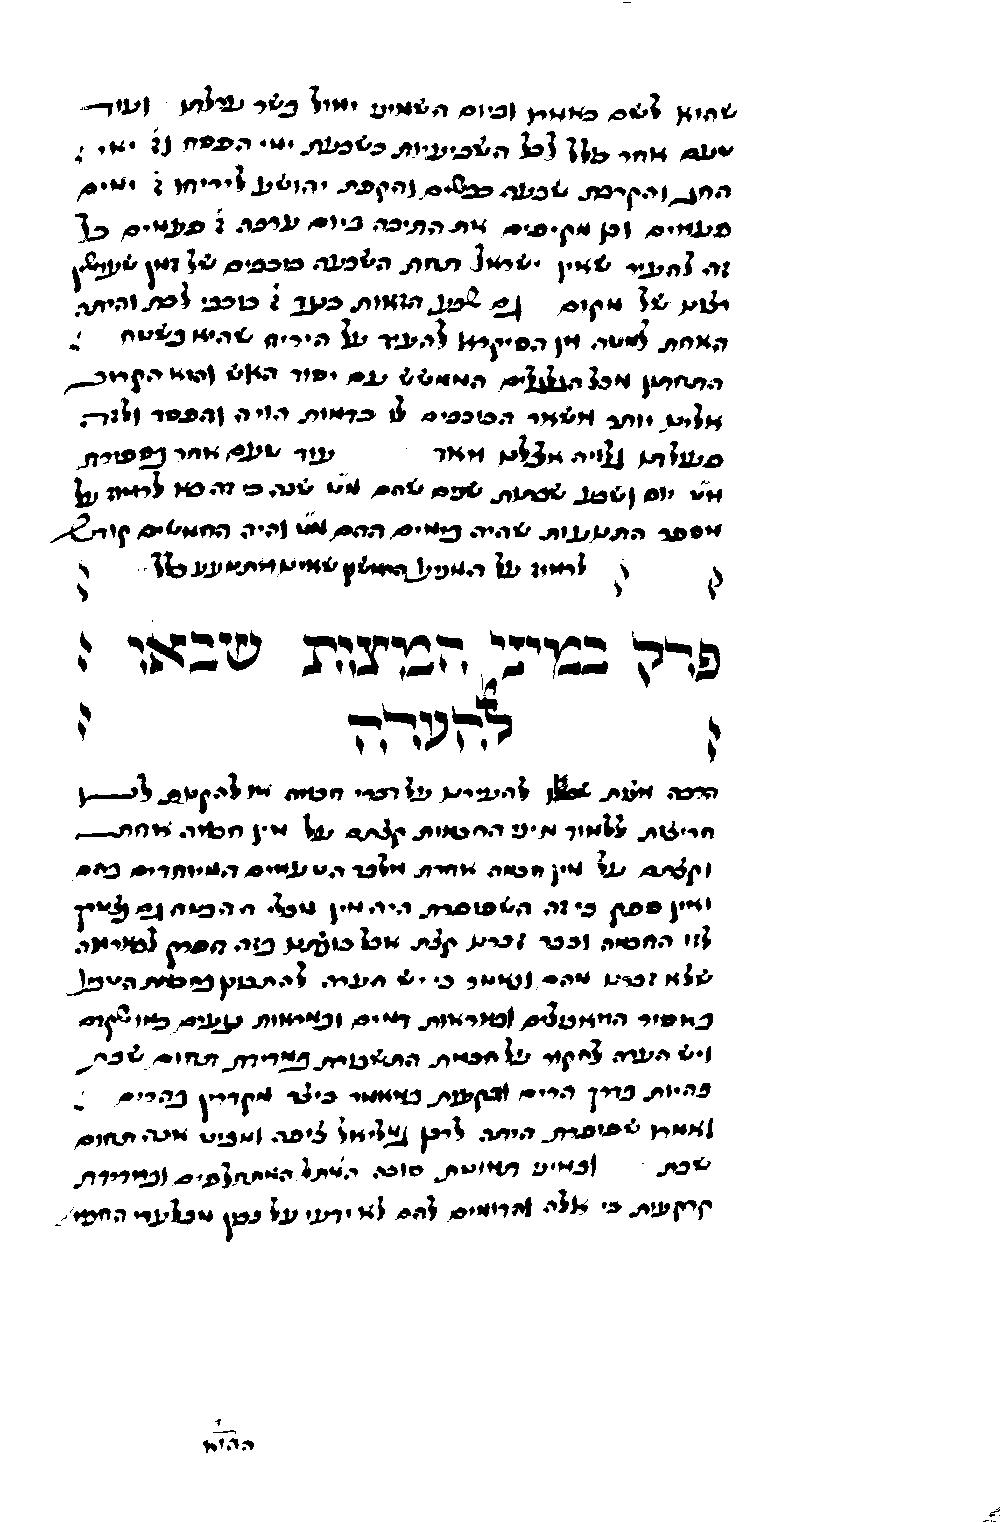 שהוא לשם כאמרו וביום השמיני ימול בשר ערלתו ועוד
טעם אחר כולל לכל השביעיות כשבעת ימי הפסח וז' ימי
החג והקרבת שבעה כבשים והקפת יהושע ליריחו ז' ימים
פעמים וכן מקיפים את התיבה ביום ערבה ז' פעמים כל
זה להעיר שאין ישראל תחת השבעה כוכבים של זמן
של מקום גם שבע הזאות כנגד ז' כוכבי לכת והיתה
האחת למטה מן הסיקרא להעיד על הירח שהיא בשטח
התחתון מכל הגלגלים הממשש עם יסוד האש והוא הקרוב
אלינו יותר משאר הכוכבים לו כדמות הויה והפסד ולזה
פעולתו גלויה אצלנו מאד עוד טעם אחר בספירת
מ"ט יום ושבע שבתות שנים שהם מ"ט שנה כי זה בא לרמוז על
מספר התנועות שהיה בימים ההם מ"ט והיה החמשים קודש
לרמוז על המניע הראשון שאינו מתנועע כלל
פרק במיני המצות שבאו
להערה
הרבה מצות להעיר על דברי חכמה או להקנות לנו
חריצות ללמוד מיני החכמות קצתם על מין חכמה אחת
וקצתם על מין חכמה אחרת מלבד הטעמים המיוחדים בהם
ואין ספק כי זה השפוטרת היה מין מכלי החכמה גם צריך
לזו החכמה וכבר זכרנו קצת אבל כוונתנו בזה הפרק
שלא זכרנו מהם ונאמר כי יש הערה להתבונן בחכמת
באסור המאכלים ובמראות דמים ובמראות נגעים כמו שקדם
ויש הערה לחקור על חכמת התשבורת במדידת תחום שבת
בהיות בדרך הרים ובקעות במאמר כיצד מקדרין בהרים
ואמרו שפופרת היתה לרבן גמליאל צופה ומביט אנה תחום
שבת ובמיני תמונת סוכה המתחלפים ובמדידת
קרקעות כי אלה והדומים להם לא ידעו על נכון מבלעדי
ההיא